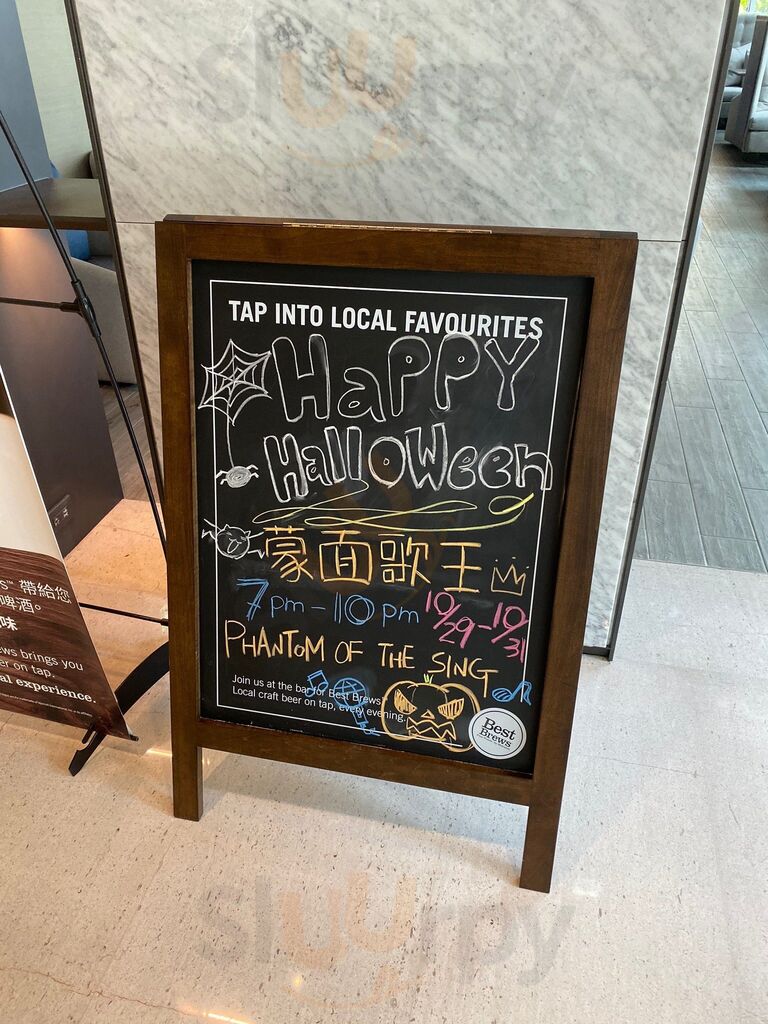 sluurpy
TAP INTO LOCAL FAVOURITES
HAPPY
Halloween
蒙面歌王
7pm-10pm 10/29-10/31
PHANTOM OF THE SING
Join us at the bar for Best Brews™
Local craft beer on tap, every evening.
Best
Brews
S™ 帶給您
啤酒。
味
ews brings you
er on tap.
al experience.
sluurpy